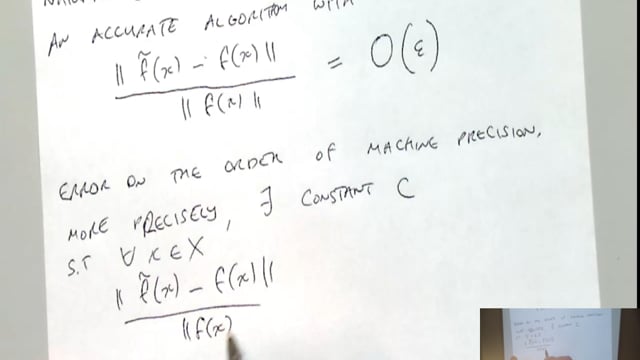 AN ACCURATE ALGORITHM WITH
‖ f̃(x) - f(x) ‖ / ‖ f(x) ‖ = O(ε)
ERROR ON THE ORDER OF MACHINE PRECISION,
MORE PRECISELY, ∃ CONSTANT C
S.T ∀ x ∈ X
‖ f̃(x) - f(x) ‖ / ‖ f(x)